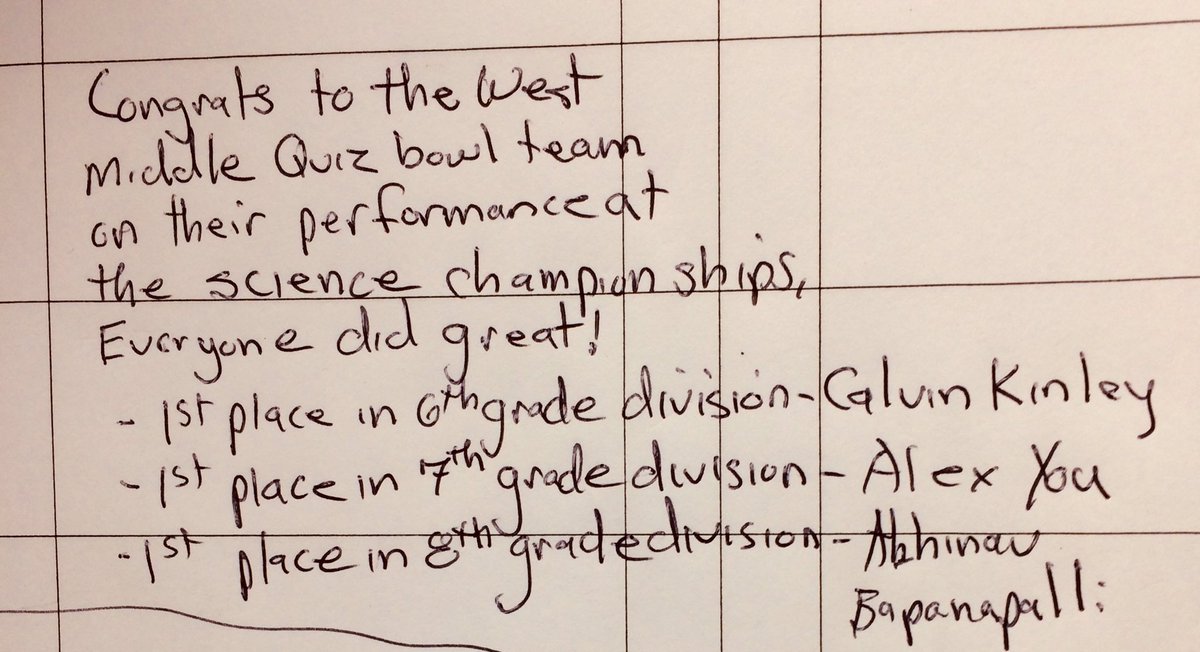 Congrats to the West
Middle Quiz bowl team
on their performance at
the science championships,
Everyone did great!
- 1st place in 6th grade division - Calvin Kinley
- 1st place in 7th grade division - Alex You
- 1st place in 8th grade division - Abhinav
Bapanapalli